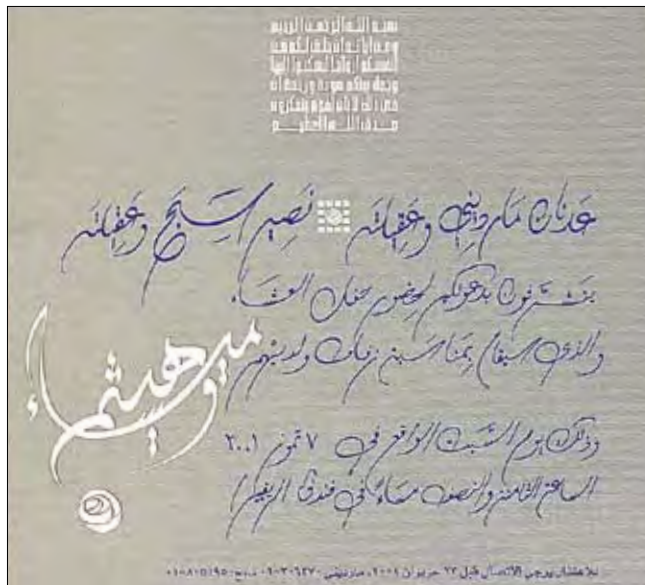 بسم الله الرحمن الرحيم
ومن آياته أن خلق لكم من
أنفسكم أزواجا لتسكنوا إليها
وجعل بينكم مودة ورحمة إن
في ذلك لآيات لقوم يتفكرون
صدق الله العظيم
عدنان مارديني وعقيلته نصير وعقيلته
يتشرفون بدعوتكم لحضور حفل العشاء
والذي سيقام بمناسبة زفاف ولديهم
ميساء وهيثم
وذلك يوم السبت الواقع في ٧ تموز ٢٠٠١
الساعة الثامنة والنصف مساءً في فندق الريفييرا
للاعتذار يرجى الاتصال قبل ٢٣ حزيران ٢٠٠١، مارديني